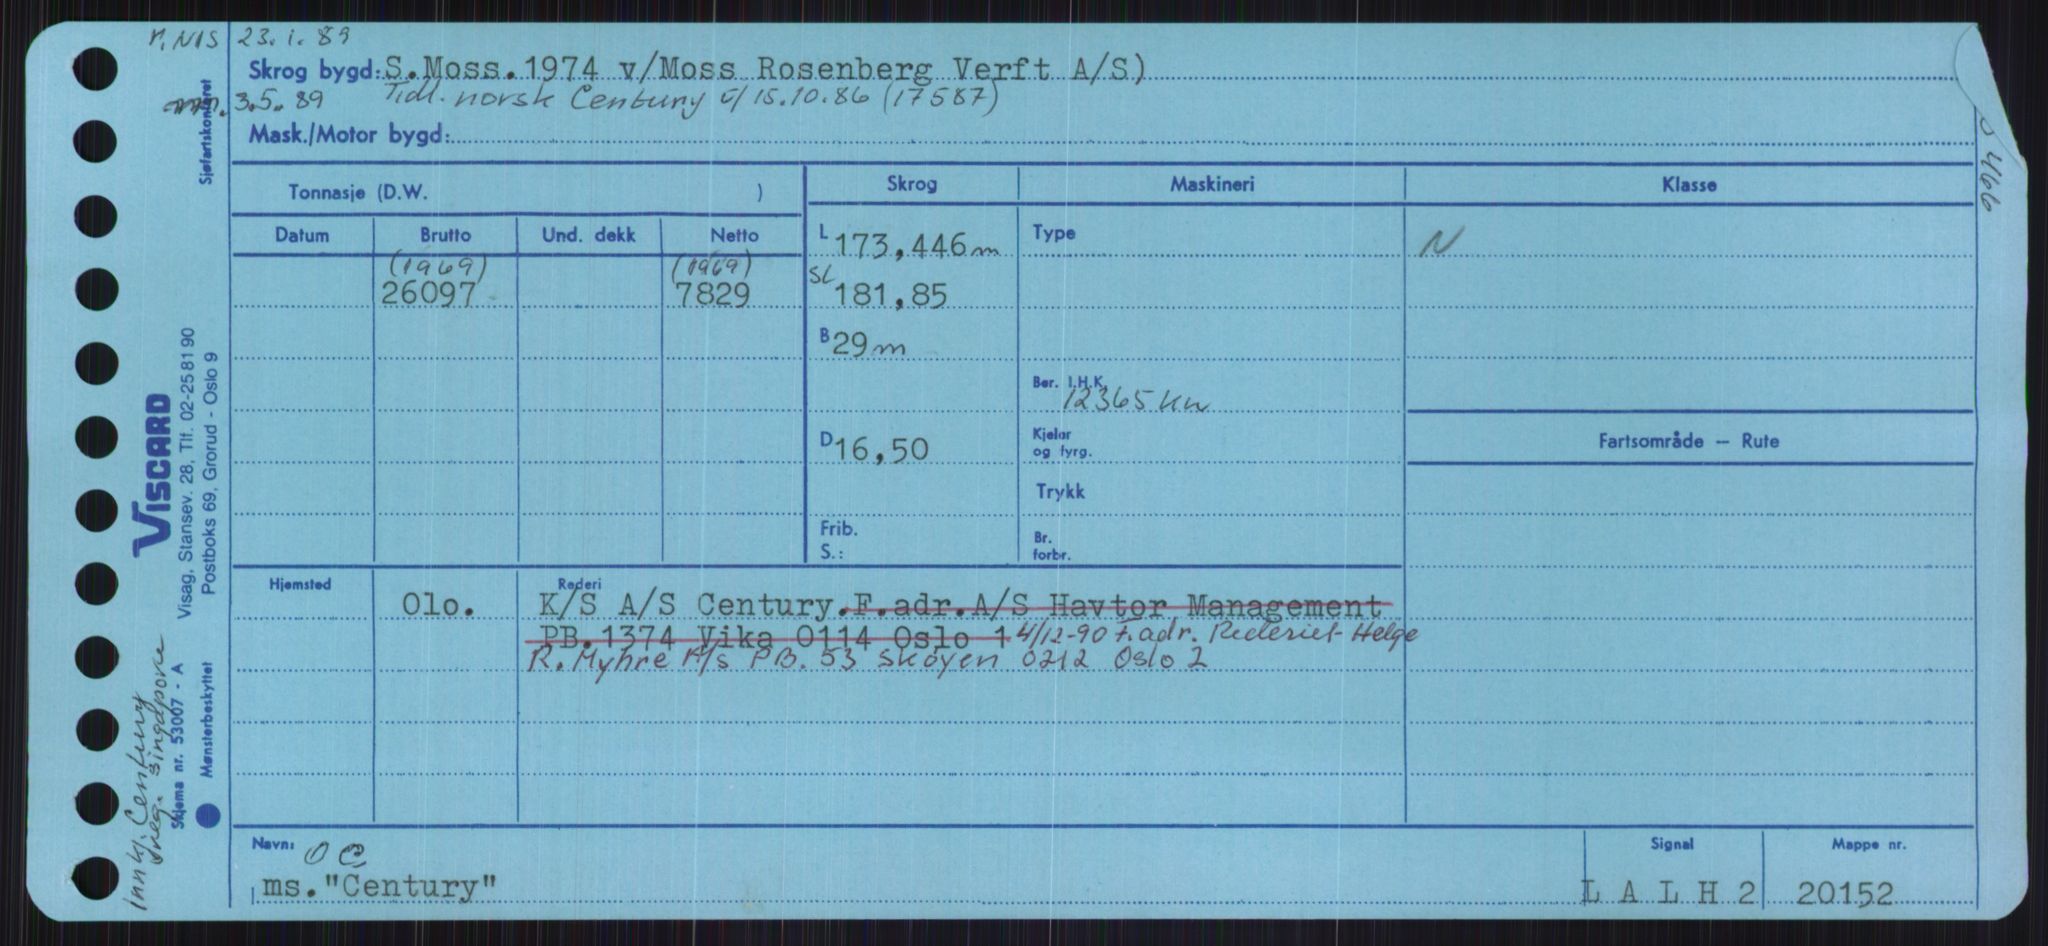 r. NIS 23.1.89
Skrog bygd: S.Moss.1974 v/Moss Rosenberg Verft A/S)
3.5.89 Tidl. norsk Century v/ 15.10.86 (17587)
Mask./Motor bygd:
Sjøfartskontoret
466
Tonnasje (D.W. )
Skrog
Maskineri
Klasse
Datum Brutto Und. dekk Netto
L 173,446 m
Type
N
(1969) (1969)
26097 7829
SL 181,85
B 29 m
Ber. I.H.K.
12365 kw
D 16,50
Kjeler
og fyrg.
Fartsområde – Rute
Trykk
Frib.
S.:
Br.
forbr.
Hjemsted
Rederi
Olo.
K/S A/S Century.F.adr.A/S Havtor Management
PB.1374 Vika 0114 Oslo 1 4/12-90 F.adr. Rederiet Helge
R. Myhre A/S PB. 53 Skøyen 0212 Oslo 2
VISCARD
Visag, Stansev. 28, Tlf. 02-25 81 90
Postboks 69, Grorud - Oslo 9
Skjema nr. 53007 - A
Mønsterbeskyttet
Innkj. Century
reg. Singapore
Navn: OC
ms."Century"
Signal
L A L H 2
Mappe nr.
20152